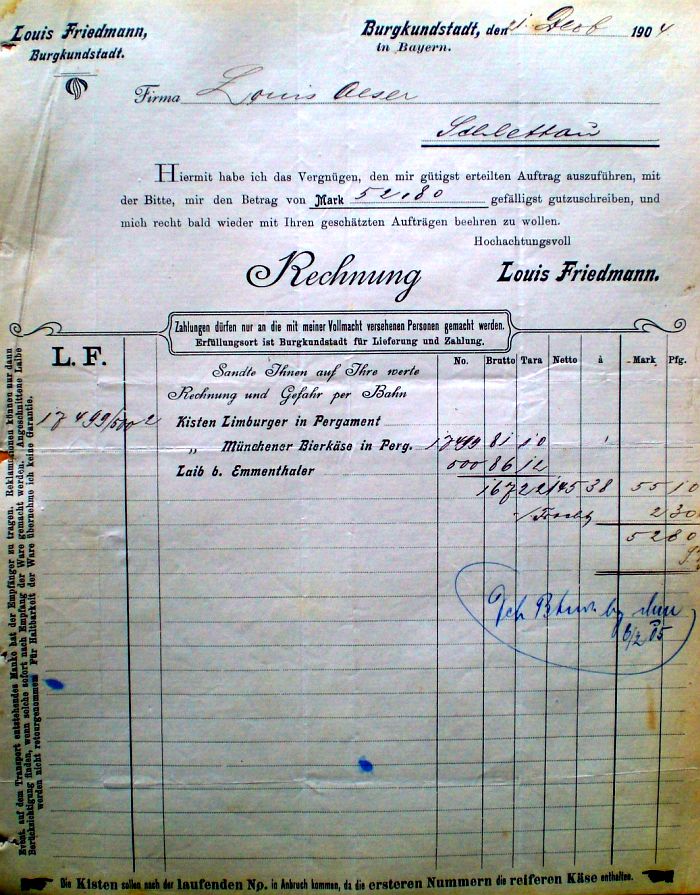 Louis Friedmann,
Burgkundstadt.
Burgkundstadt, den 21. Dezb 1904
in Bayern.
Firma Louis Oeser
Schlettau
Hiermit habe ich das Vergnügen, den mir gütigst erteilten Auftrag auszuführen, mit
der Bitte, mir den Betrag von Mark 52.80 gefälligst gutzuschreiben, und
mich recht bald wieder mit Ihren geschätzten Aufträgen beehren zu wollen.
Hochachtungsvoll
Rechnung Louis Friedmann.
Zahlungen dürfen nur an die mit meiner Vollmacht versehenen Personen gemacht werden.
Erfüllungsort ist Burgkundstadt für Lieferung und Zahlung.
L. F.
Sandte Ihnen auf Ihre werte
Rechnung und Gefahr per Bahn
No. Brutto Tara Netto à Mark Pfg.
17499/500 2 Kisten Limburger in Pergament
„ Münchener Bierkäse in Perg. 17499 81 10
Laib b. Emmenthaler 500 86 12
167 22 145 38 55 10
Fracht 2 30
52 80
6/2 05
Event. auf dem Transport entstehendes Manko hat der Empfänger zu tragen. Reklamationen können nur dann
Berücksichtigung finden, wenn solche sofort nach Empfang der Ware gemacht werden. Angeschnittene Laibe
werden nicht retourgenommen. Für Haltbarkeit der Ware übernehme ich keine Garantie.
Die Kisten sollen nach der laufenden No. in Anbruch kommen, da die ersteren Nummern die reiferen Käse enthalten.